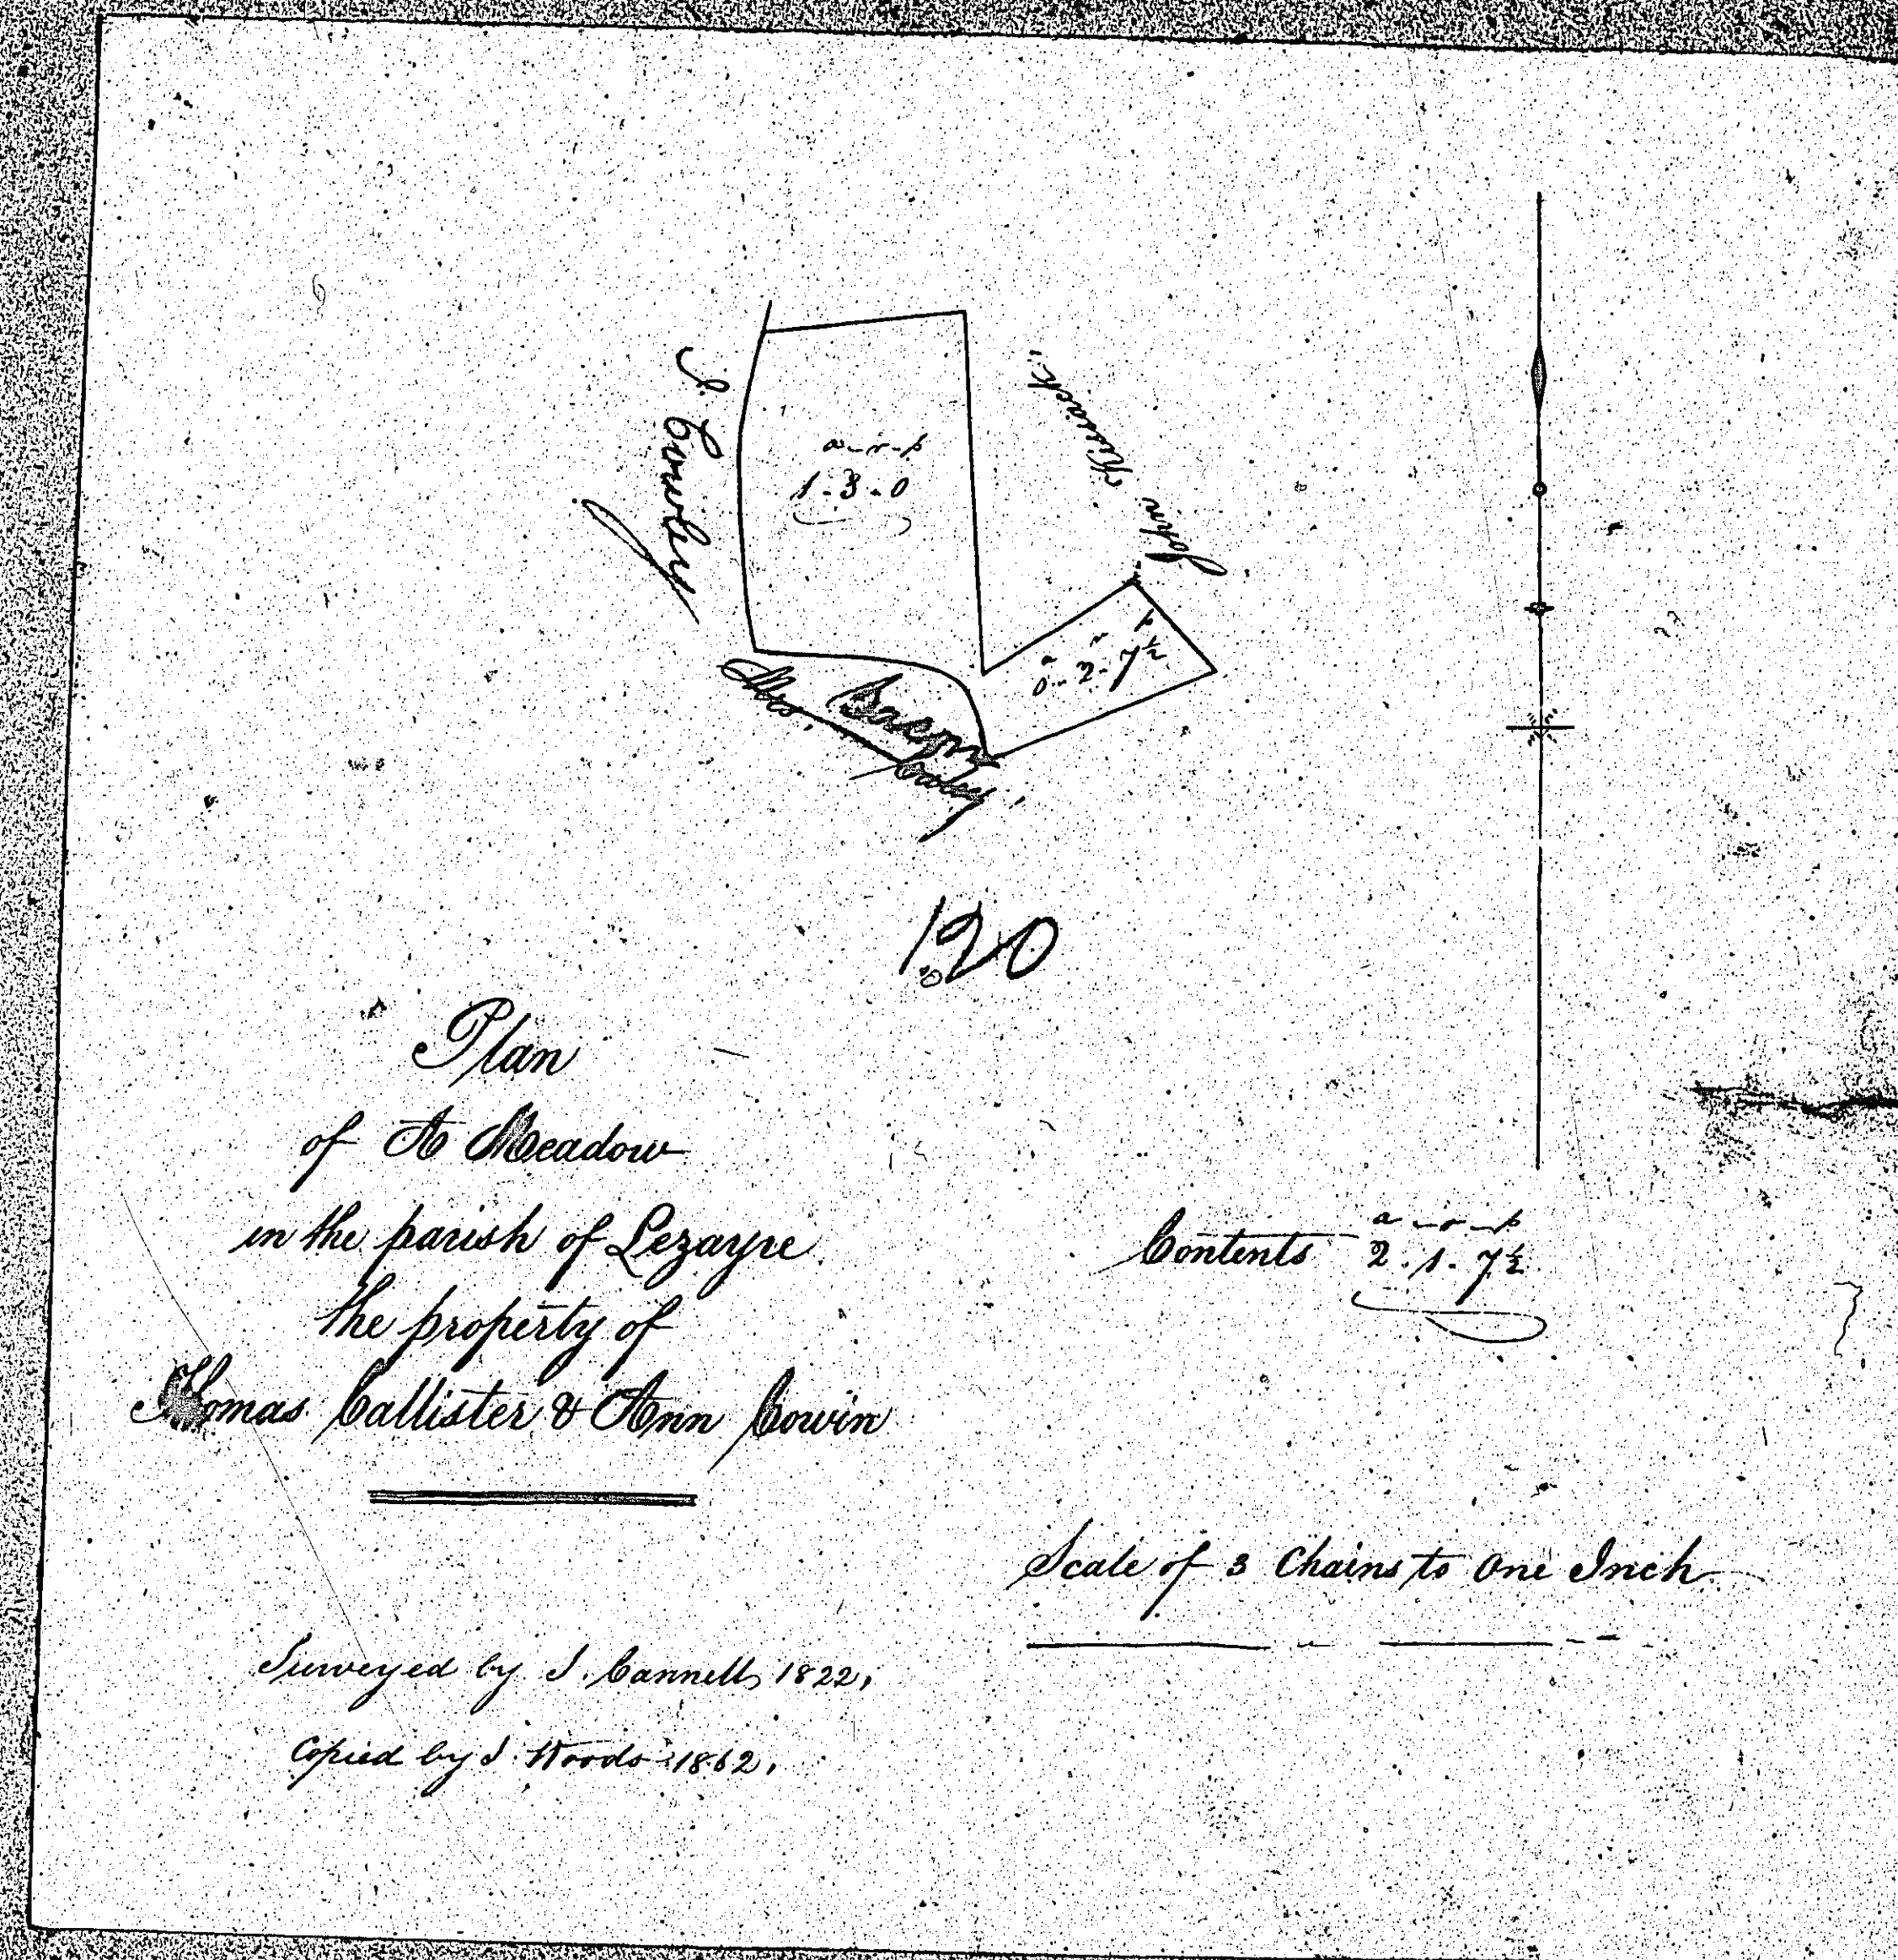 J. Cowley
a - r - p
1 - 3 - 0
John Kissack
a r p
0 - 2 - 7½
Mrs. Bacon
120
Plan
of A Meadow
in the parish of Lezayre
the property of
Thomas Callister & Ann Cowin
Contents a - r - p
2 - 1 - 7½
Scale of 3 Chains to One Inch
Surveyed by J. Cannell, 1822,
Copied by J. Woods 1862,